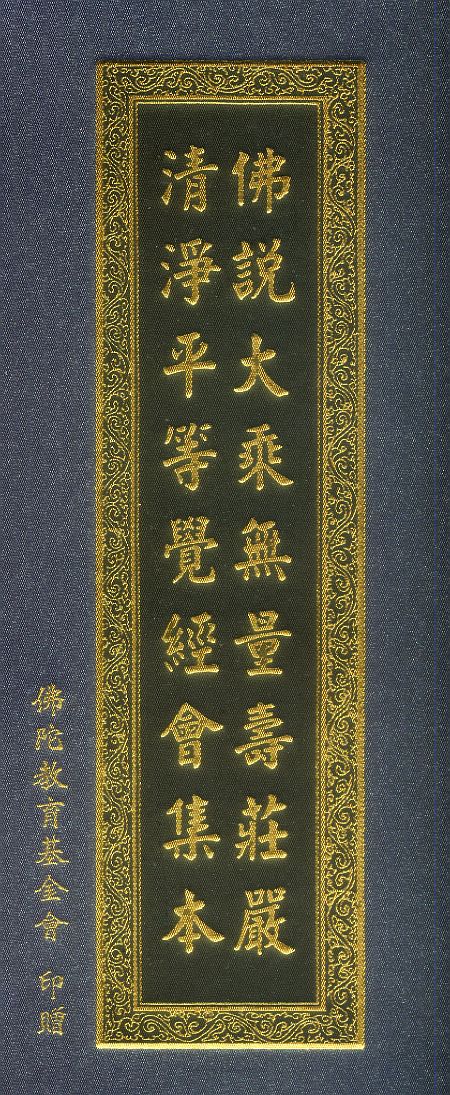 佛説大乘無量壽莊嚴
清淨平等覺經會集本
佛陀教育基金會 印贈